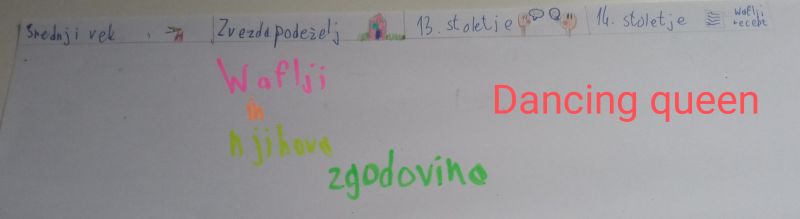 Srednji vek
Zvezda podeželj
13. stoletje
14. stoletje
Waflji
recept
Waflji
in
njihova
zgodovina
Dancing queen